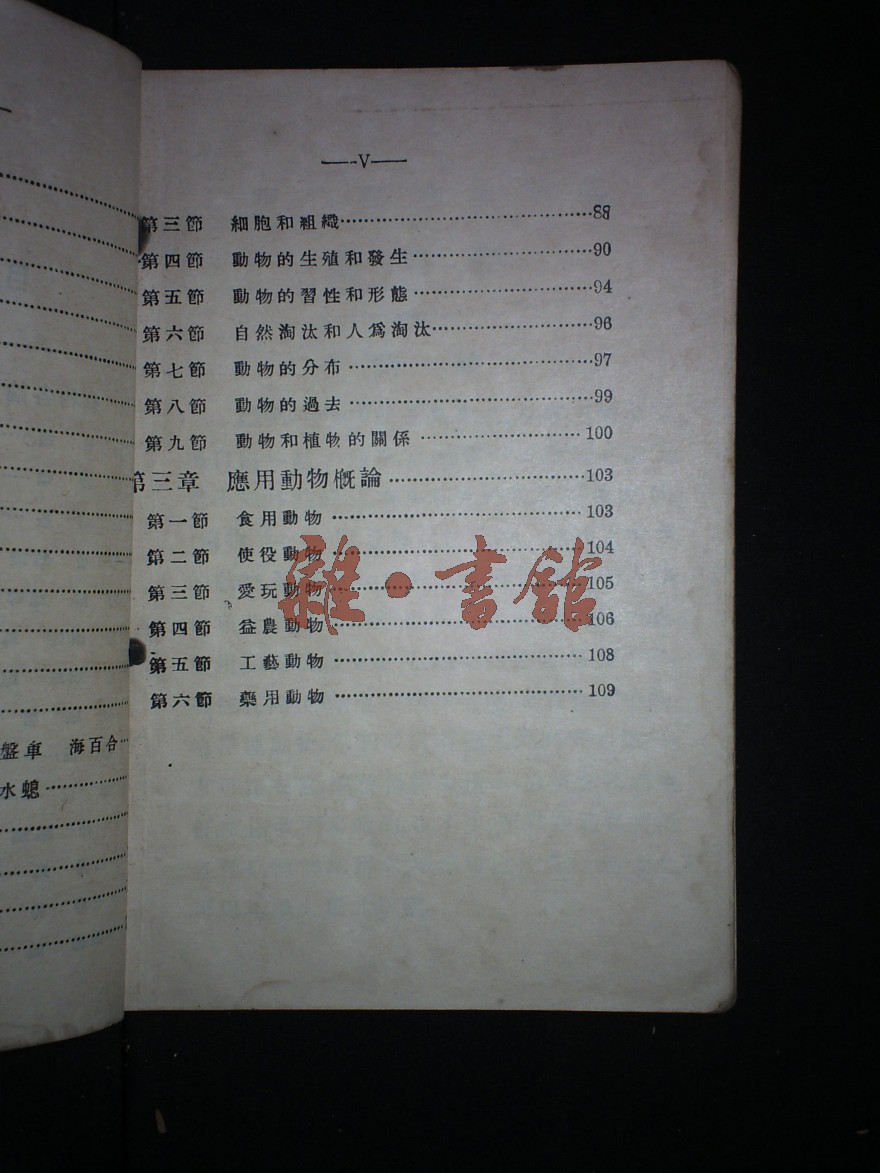 盤車 海百合
水螅
——V——
第三節 細胞和組織 88
第四節 動物的生殖和發生 90
第五節 動物的習性和形態 94
第六節 自然淘汰和人爲淘汰 96
第七節 動物的分布 97
第八節 動物的過去 99
第九節 動物和植物的關係 100
第三章 應用動物概論 103
第一節 食用動物 103
第二節 使役動物 104
第三節 愛玩動物 105
第四節 益農動物 106
第五節 工藝動物 108
第六節 藥用動物 109
雜·書館